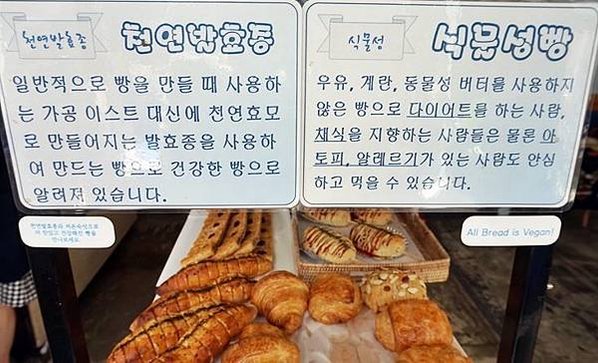 천연발효종
천연발효종
일반적으로 빵을 만들 때 사용하
는 가공 이스트 대신에 천연효모
로 만들어지는 발효종을 사용하
여 만드는 빵으로 건강한 빵으로
알려져 있습니다.
식물성
식물성빵
우유, 계란, 동물성 버터를 사용하지
않은 빵으로 다이어트를 하는 사람,
채식을 지향하는 사람들은 물론 아
토피, 알레르기가 있는 사람도 안심
하고 먹을 수 있습니다.
천연발효종과 비건식으로
더 맛있고 건강해진 빵을
만나보세요.
All Bread is Vegan!